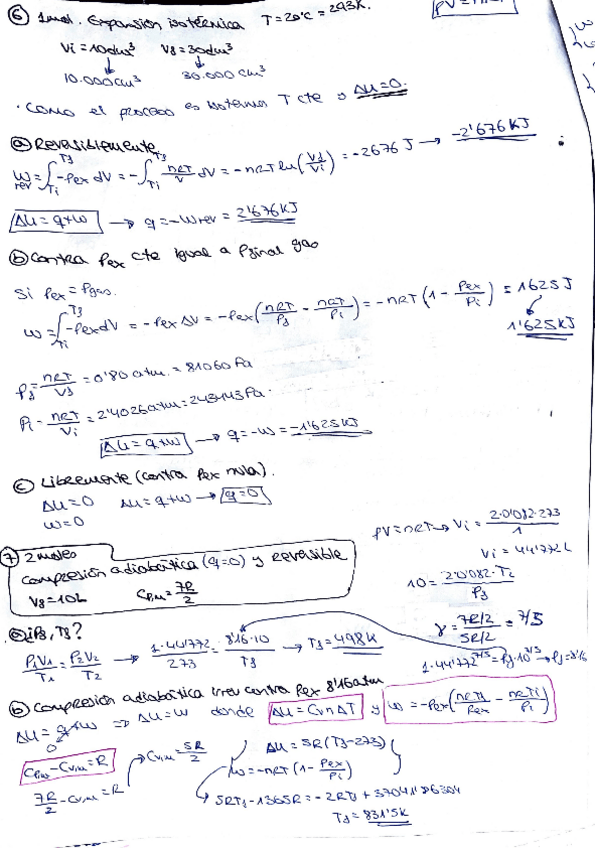 ⑥ 1mol. Expansión isotérmica T=20°C = 293K.
PV=nRT
Vi = 10dm³ Vf = 30dm³
10.000cm³ 30.000cm³
· Como el proceso es isotermo T cte → ΔU=0.
ⓐ Reversiblemente
Wrev = ∫Ti^Tf -Pex dV = -∫Ti^Tf nRT/V dV = -nRT ln(Vf/Vi) = -2676 J → -2'676 KJ
ΔU = q+w → q = -Wrev = 2'676KJ
ⓑ Contra Pex cte igual a Pfinal gas
Si Pex = Pgas.
W = ∫Ti^Tf -Pex dV = -Pex ΔV = -Pex (nRT/Pf - nRT/Pi) = -nRT (1 - Pex/Pi) = 1625J
1'625KJ
Pf = nRT/Vf = 0'80 atm. = 81060 Pa
Pi = nRT/Vi = 2'4026atm = 243443Pa.
ΔU = q+w → q = -w = -1'625KJ
ⓒ Libremente (contra Pex nula).
ΔU = 0 ΔU = q+w → q=0
w = 0
⑦ 2 moles
Compresión adiabática (q=0) y reversible
Vf = 10L Cp,m = 7R/2
PV = nRT → Vi = 2·0'082·273/1
Vi = 44'772L
10 = 2·0'082·T2/Pf
γ = 7R/2 / 5R/2 = 7/5
ⓐ ¿Pf, Tf?
P1V1/T1 = P2V2/T2 → 1·44'772/273 = 8'16·10/Tf → Tf = 498K
1·44'772^7/5 = Pf·10^7/5 → Pf = 8'16
ⓑ Compresión adiabática irrev contra Pex 8'16atm
ΔU = q+w ⇒ ΔU = w donde ΔU = CvnΔT y w = -Pex (nRTf/Pex - nRTi/Pi)
0
Cp,m - Cv,m = R
Cv,m = 5R/2
7R/2 - Cv,m = R
ΔU = 5R(Tf-273)
w = -nRT (1 - Pex/Pi)
5RTf - 1365R = -2RTf + 37041'76304
Tf = 831'5K